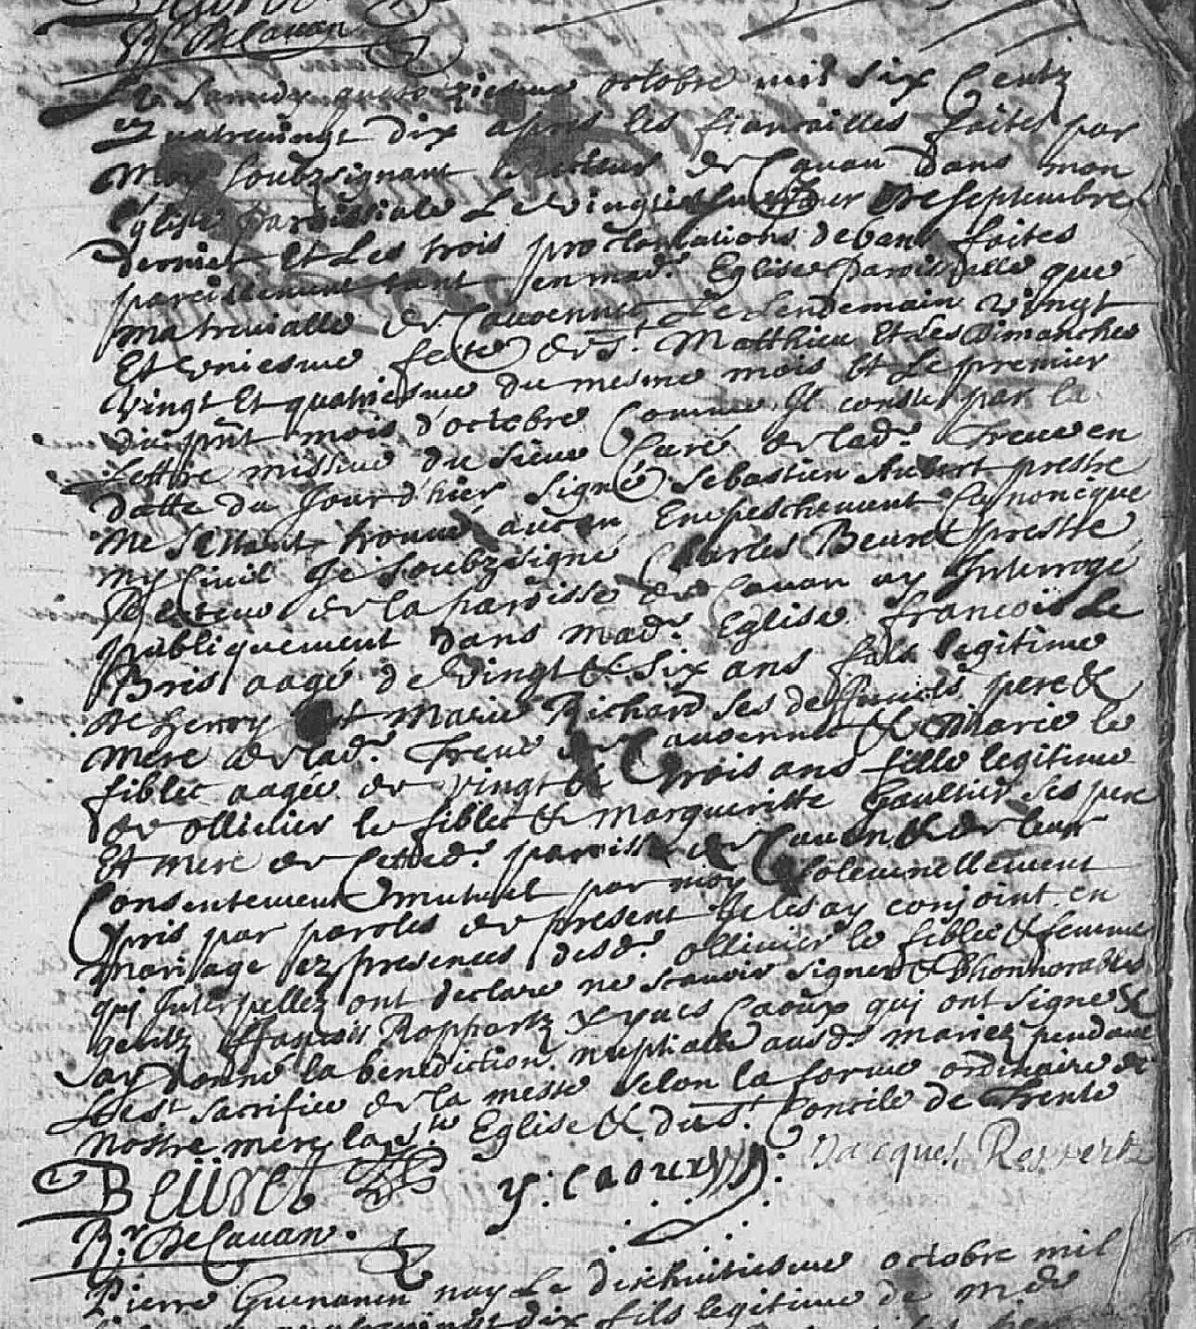 Rr De Cauan
Le samedy quatorziesme octobre mil six Centz
quatrevingt dix apres les fiancailles faites par
Moy soubzsignant Recteur de Cauan dans mon
Eglise paroissiale Le vingtiesme jour de septembre
dernier Et Les trois proclamations devant faites
pareillement tant en mad. Eglise paroissialle que
ma trevialle de Cauoennec Le lendemain vingt
Et uniesme feste de St. Matthieu Et Les Dimanches
Vingt Et quatriesme du mesme mois Et Le premier
du pnt mois d'octobre Comme Il conste par la
Lettre missive du sieur Curé de lad. Treue en
datte du Jour d'hier signé Sebastien prestre
ne s'estant trouué aucun Empeschement Canonicque
ny Civil Je soubzsigné Charles Beuret prestre
Recteur de la paroisse de Cauan ay Interrogé
publiquement dans mad. Eglise francois Le
Bris aagé de Vingt & six ans fils legitime
de henry Et Marie Richard ses deffuncts pere &
mere de lad. Treue de Cauoennec & Marie le
fiblec aagée de vingt & trois ans fille legitime
de ollivier le fiblec & Margueritte Gaultier ses pere
Et mere de Cetted. paroisse de Cauan & de leur
Consentement mutuel par moy solemnellement
pris par paroles de present Je les ay conjoint en
mariage ez presences desd. ollivier le fiblec & femme
qui Interpellez ont declaré ne scauoir signer & d'honnorables
gentz Ropportz & yues Caoux qui ont signé &
ay donné la benediction nuptialle ausd. mariez pendant
Le st sacrifice de la messe selon la forme ordinaire de
Nostre mere la ste Eglise & du St. Concile de Trente
Jacques Roppertz
Beuret y: Caoux
Rr De Cauan.
Pierre Guenanen nay Le dixhuitiesme octobre mil
dix fils legitime de